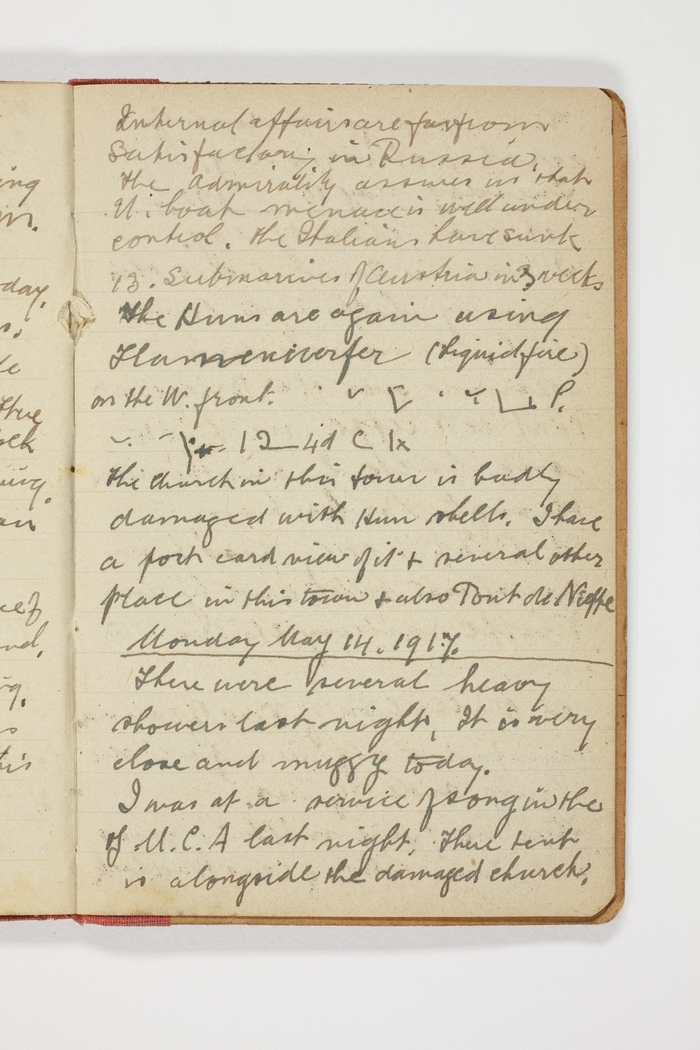 ing
day.
Internal affairs are far from
satisfactory in Russia.
The Admirality assures us that
U. boat menace is well under
control. The Italians have sunk
13. Submarines of Austria in 3 weeks
The Huns are again using
Flammenwerfer (liquid fire)
on the W. front.
The church in this town is badly
damaged with Hun shells. I have
a post card view of it & several other
place in this town & also Pont de Nieppe
Monday May 14. 1917.
There were several heavy
showers last night, It is very
close and muggy today.
I was at a service of song in the
Y M. C. A last night. There tent
is alongside the damaged church.